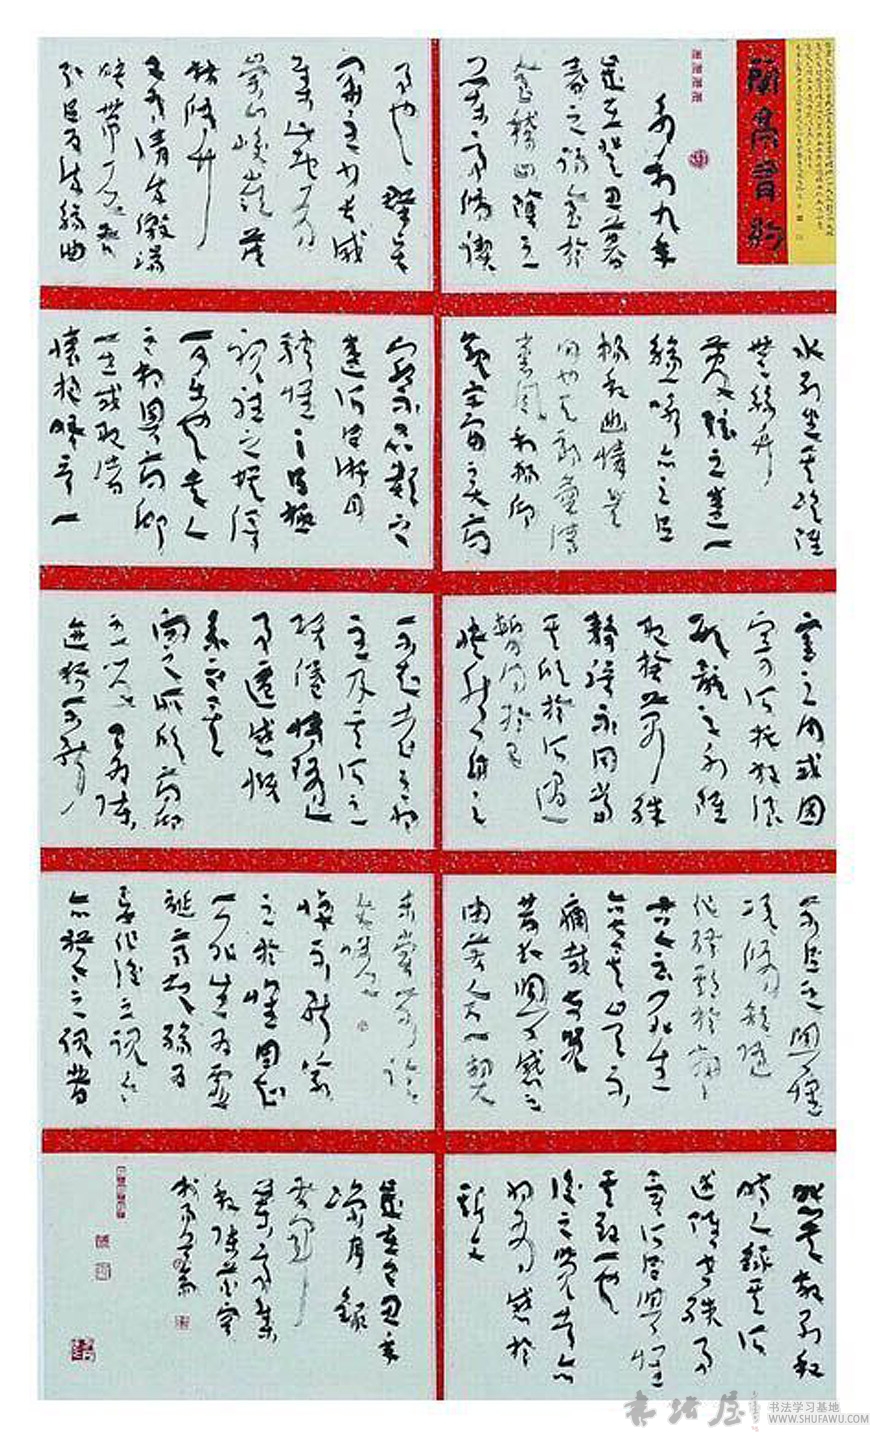 永和九年
歲在癸丑暮
春之初會於
會稽山陰之
蘭亭脩禊
事也羣賢
畢至少長咸
集此地有
崇山峻嶺茂
林脩竹
又有清流激湍
映帶左右
引以為流觴曲
水列坐其次雖
無絲竹
管弦之盛一
觴一詠亦足以
暢敘幽情是
日也天朗氣清
惠風和暢仰
觀宇宙之大俯
察品類之
盛所以遊目
騁懷足以極
視聽之娛信
可樂也夫人
之相與俯仰
一世或取諸
懷抱晤言一
室之內或因
寄所託放浪
形骸之外雖
趣舍萬殊
靜躁不同當
其欣於所遇
暫得於己
快然自足
不知老之將
至及其所之
既倦情隨
事遷感慨
係之矣
向之所欣俯仰
之間已為陳
迹猶不能
不以之興懷
況脩短隨
化終期於盡
古人云死生
亦大矣豈不
痛哉每覽
昔人興感之
由若合一契
未嘗不臨
文嗟
悼不能喻
之於懷固知
一死生為虛
誕齊彭殤為
妄作後之視今
亦猶今之視昔
悲夫故列敘
時人錄其所
述雖世殊事
異所以興懷
其致一也
後之覽者亦
將有感於
斯文
歲在己丑年
書法学习基地
WWW.SHUFAWU.COM